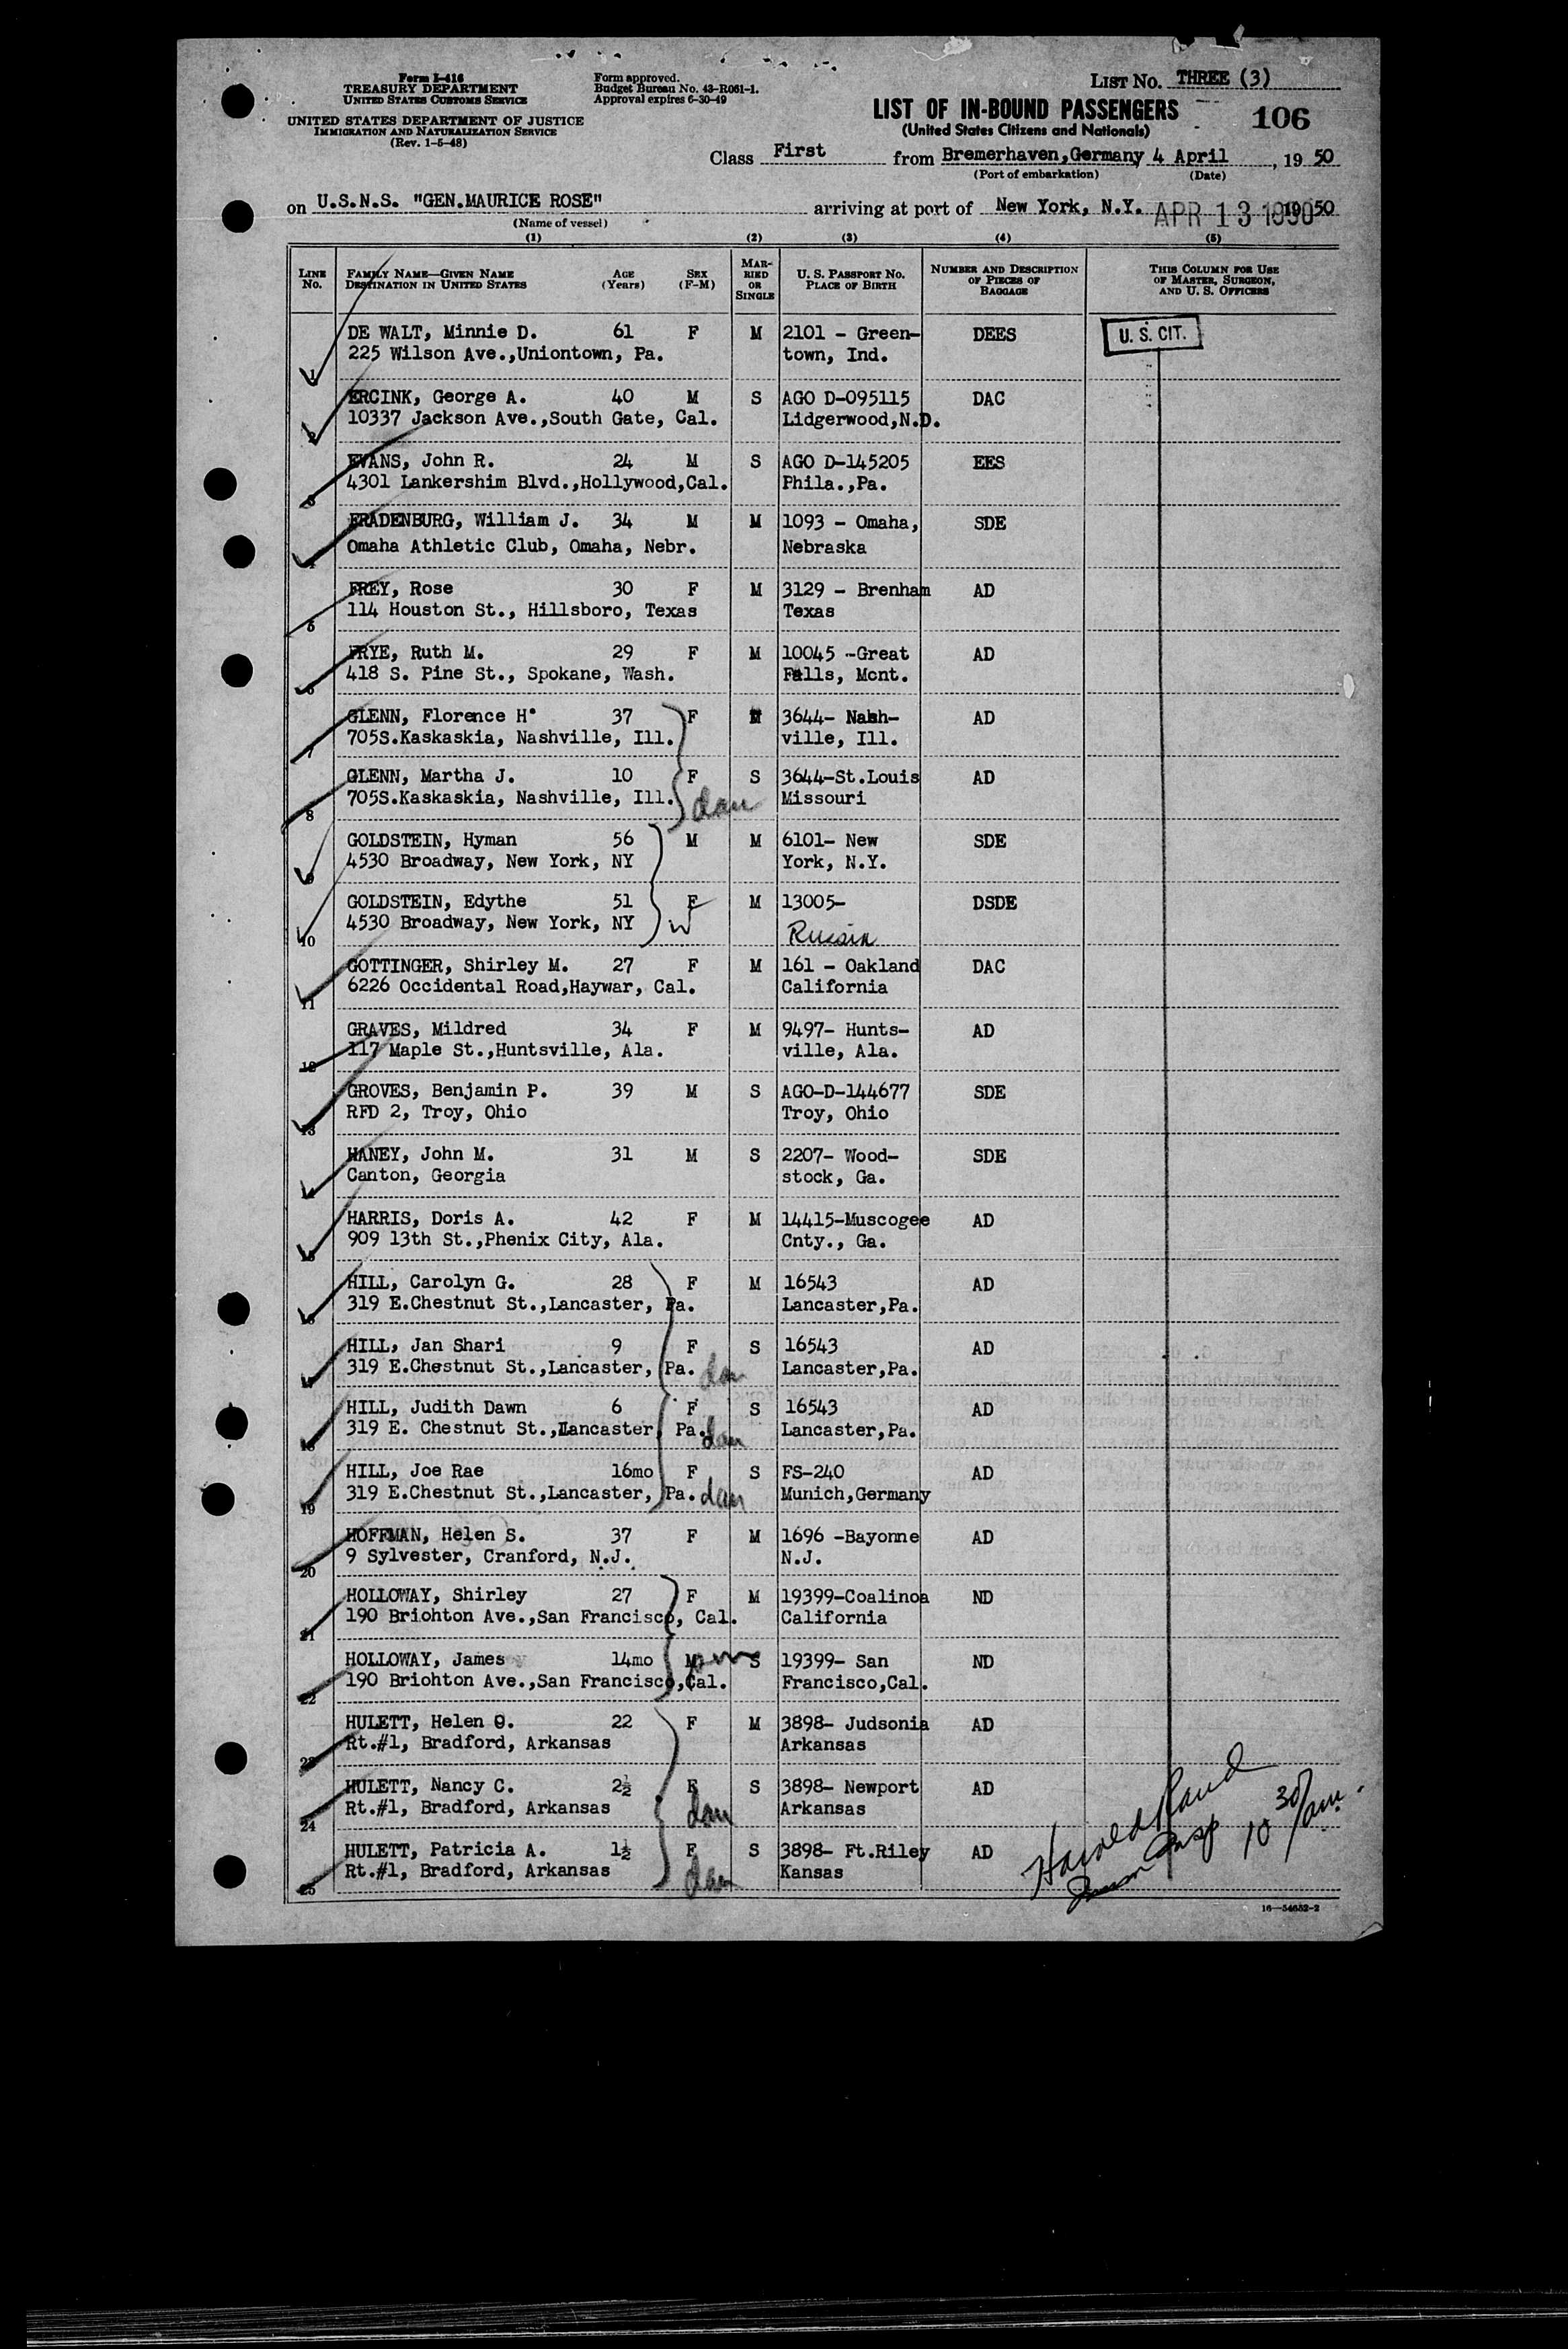 Form I-416
TREASURY DEPARTMENT
UNITED STATES CUSTOMS SERVICE
UNITED STATES DEPARTMENT OF JUSTICE
IMMIGRATION AND NATURALIZATION SERVICE
(Rev. 1-5-48)
Form approved.
Budget Bureau No. 43-R061-1.
Approval expires 6-30-49
LIST No. THREE (3)
LIST OF IN-BOUND PASSENGERS
(United States Citizens and Nationals)
106
Class First from Bremerhaven,Germany 4 April , 19 50
(Port of embarkation) (Date)
on U.S.N.S. "GEN.MAURICE ROSE" arriving at port of New York, N.Y. APR 13 1950 1950
(Name of vessel)
(1) (2) (3) (4) (5)
LINE No. FAMILY NAME—GIVEN NAME DESTINATION IN UNITED STATES AGE (Years) SEX (F-M) MARRIED OR SINGLE U. S. PASSPORT No. PLACE OF BIRTH NUMBER AND DESCRIPTION OF PIECES OF BAGGAGE THIS COLUMN FOR USE OF MASTER, SURGEON, AND U. S. OFFICERS
1 DE WALT, Minnie D. 61 F M 2101 - Green- DEES U. S. CIT.
225 Wilson Ave.,Uniontown, Pa. town, Ind.
2 ERCINK, George A. 40 M S AGO D-095115 DAC
10337 Jackson Ave.,South Gate, Cal. Lidgerwood,N.D.
3 EVANS, John R. 24 M S AGO D-145205 EES
4301 Lankershim Blvd.,Hollywood,Cal. Phila.,Pa.
4 FRADENBURG, William J. 34 M M 1093 - Omaha, SDE
Omaha Athletic Club, Omaha, Nebr. Nebraska
5 FREY, Rose 30 F M 3129 - Brenham AD
114 Houston St., Hillsboro, Texas Texas
6 FRYE, Ruth M. 29 F M 10045 -Great AD
418 S. Pine St., Spokane, Wash. Falls, Mont.
7 GLENN, Florence H. 37 F M 3644- Nash- AD
705S.Kaskaskia, Nashville, Ill. ville, Ill.
8 GLENN, Martha J. 10 F S 3644-St.Louis AD
705S.Kaskaskia, Nashville, Ill. dau Missouri
9 GOLDSTEIN, Hyman 56 M M 6101- New SDE
4530 Broadway, New York, NY York, N.Y.
10 GOLDSTEIN, Edythe 51 F M 13005- DSDE
4530 Broadway, New York, NY W Russia
11 GOTTINGER, Shirley M. 27 F M 161 - Oakland DAC
6226 Occidental Road,Haywar, Cal. California
12 GRAVES, Mildred 34 F M 9497- Hunts- AD
117 Maple St.,Huntsville, Ala. ville, Ala.
13 GROVES, Benjamin P. 39 M S AGO-D-144677 SDE
RFD 2, Troy, Ohio Troy, Ohio
14 HANEY, John M. 31 M S 2207- Wood- SDE
Canton, Georgia stock, Ga.
15 HARRIS, Doris A. 42 F M 14415-Muscogee AD
909 13th St.,Phenix City, Ala. Cnty., Ga.
16 HILL, Carolyn G. 28 F M 16543 AD
319 E.Chestnut St.,Lancaster, Pa. Lancaster,Pa.
17 HILL, Jan Shari 9 F S 16543 AD
319 E.Chestnut St.,Lancaster, Pa. dau Lancaster,Pa.
18 HILL, Judith Dawn 6 F S 16543 AD
319 E. Chestnut St.,Lancaster, Pa. dau Lancaster,Pa.
19 HILL, Joe Rae 16mo F S FS-240 AD
319 E.Chestnut St.,Lancaster, Pa. dau Munich,Germany
20 HOFFMAN, Helen S. 37 F M 1696 -Bayonne AD
9 Sylvester, Cranford, N.J. N.J.
21 HOLLOWAY, Shirley 27 F M 19399-Coalinoa ND
190 Briohton Ave.,San Francisco, Cal. California
22 HOLLOWAY, James 14mo M S 19399- San ND
190 Briohton Ave.,San Francisco,Cal. Francisco,Cal.
23 HULETT, Helen O. 22 F M 3898- Judsonia AD
Rt.#1, Bradford, Arkansas Arkansas
24 HULETT, Nancy C. 2½ F S 3898- Newport AD
Rt.#1, Bradford, Arkansas dau Arkansas
25 HULETT, Patricia A. 1½ F S 3898- Ft.Riley AD
Rt.#1, Bradford, Arkansas dau Kansas
Insp 10 30/am.
16—54652-2